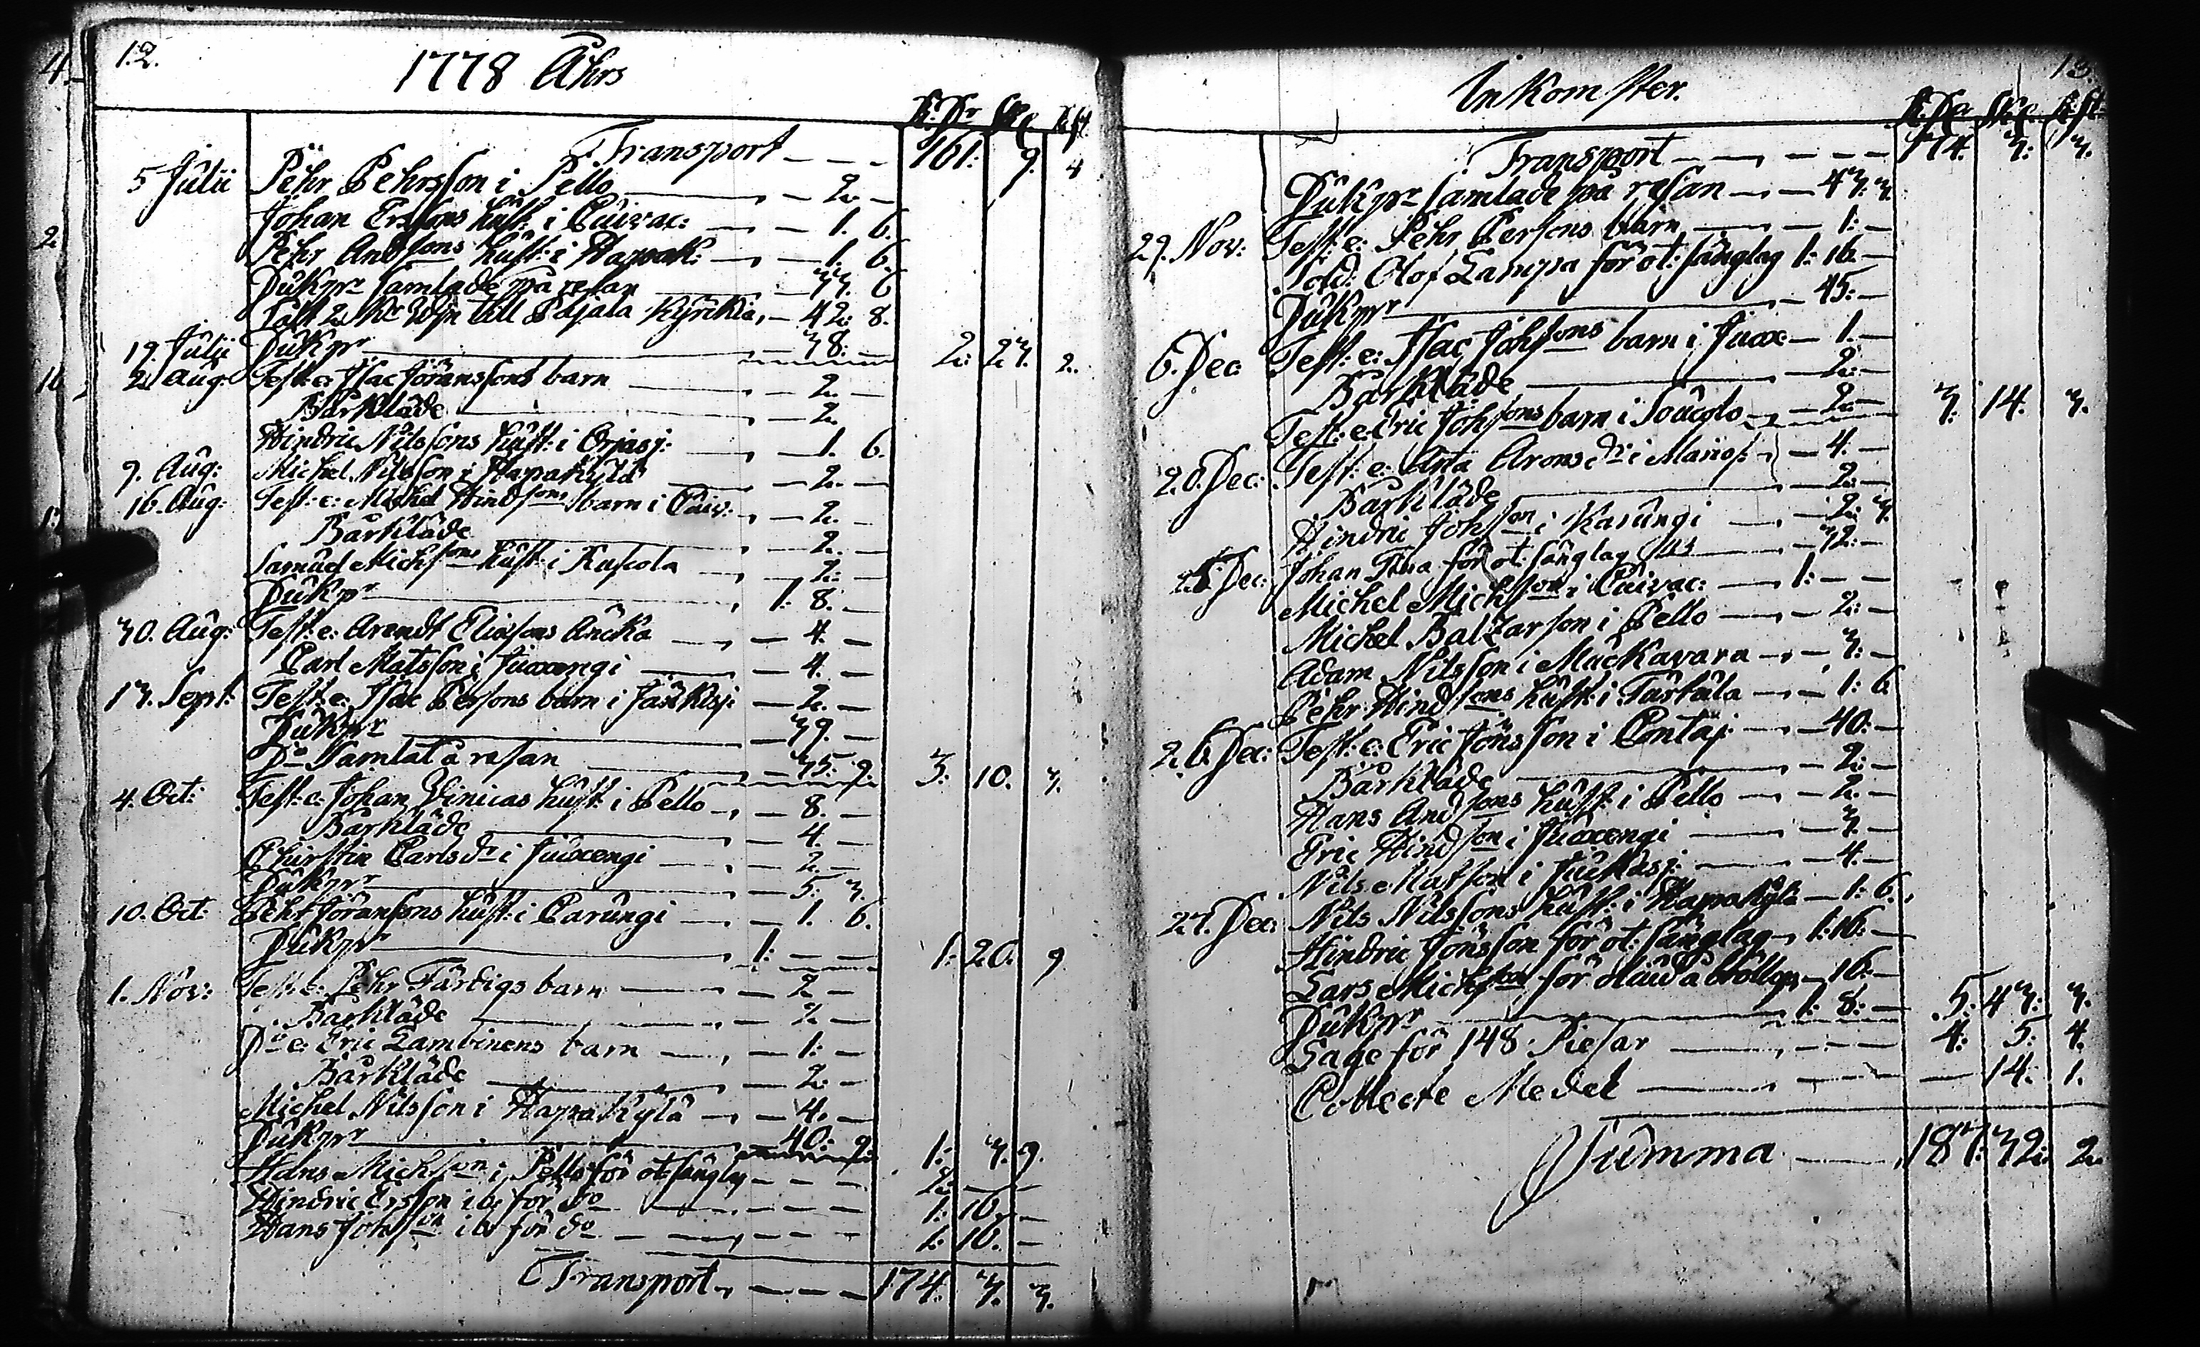 12.
1778 Åhrs
R:Dr Sk: R:st.
Transport - - - 161: 9. 4
5 Julii Pehr Pehrsson i Pello - 2. -
Johan Ersßons hust: i Cuivac: - 1. 6.
Pehr Andsons hust: i Hapak: - 1. 6.
Dukpr samlade på resan - 33. 6
2 Kr Wijn till Kyrckia, - 42: 8.
19. Julii Dukpr 38: 2: 23. 2.
2. Aug: Test: e: Isac Göranssons barn - 2. -
Bårkläde - 2.
Hindric Nilssons hust: i - 1. 6.
9. Aug: Michel Nilsson i Hapakylä - 2. -
16. Aug: Test: e: Michel Hindsons barn i Cuiv: - 2. -
Bårkläde - 2. -
Samuel Michsons hust: i Ruscola - 2: -
Dukpr 1: 8. -
30. Aug: Test: e: Arendt Eliæsons Äncka - 4. -
Carl Matsson i Juoxengi - 4. -
13. Sept: Test: e: Isac Persons barn i - 2. -
Dukpr - 39. -
Do Samlat å resan - 35. 9. 3: 10. 3.
4. Oct: Test: e: Johan Vinicas hust: i Pello - 8. -
Bårkläde - 4. -
Christin Carlsdr i Juoxengi - 2. -
Dukpr - 5: 3.
10. Oct: Pehr Göransons hust: i Carungi - 1. 6.
Dukpr 1: - - 1: 20. 9
1. Nov: Test: e: Pehr Färdigs barn - 2 -
Bårkläde - 2. -
Do e: Eric Lambinens barn - 1: -
Bårkläde - 2. -
Michel Nilsson i Hapakylä - 4. -
Dukpr 40: 9. 1: 3. 9.
Hans Michson i Pello för ot: sänglag - - - 2: - -
Hindric Ersson ib: för do - - - 1: 16. -
Hans Johsson ib för do - - - 1: 16. -
Transport - - - 174. 3. 3.
13.
Inkomster.
R:Dr Sk: R:st.
Transport - - - 174. 3: 3.
Dukpr samlade på resan - 43. 3
29. Nov: Test: e: Pehr Persons barn - 1: -
Sold: Olof Lampa för ot: sänglag 1: 16. -
Dukpr - 45: -
6. Dec Test: e: Isac Johsons barn i Juox: - 1. -
Bårkläde - 2: -
Test: e: Eric Johsons barn i - 2: - 3: 14. 3.
20. Dec: Test: e: Anna Aronsdr i - 4. -
Bårkläde - 2: -
Hindric Johsson i Karungi - 2: 3.
Johan för ot: sänglag - 32: -
25 Dec: Michel Michson i Cuivac: 1: - -
Michel Baltzarson i Pello - 2: -
Adam Nilsson i Muckavara - 3: -
Pehr Hindsons hust: i Turtula - 1: 6
26. Dec: Test: e: Eric Jönsson i - 40: -
Bårkläde - 2: -
Hans Andsons hust: i Pello - 2. -
Eric Hindson i Juoxengi - 3. -
Nils Matson i - 4. -
27. Dec: Nils Nilssons hust: i Hapakylä - 1: 6.
Hindric Jönsson för ot: sänglag - 1: 16: -
Lars Michson för bröllop - 16: -
Dukpr 1: 8: - 5: 43: 3.
Lage för 148: Piesar - - - 4: 5: 4.
Collecte Medel - - - 14: 1.
Summa - 187: 32: 2.